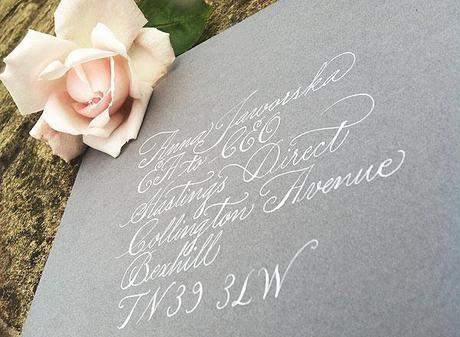 Anna Jaworska
EA to CEO
Hastings Direct
Collington Avenue
Bexhill
TN39 3LW